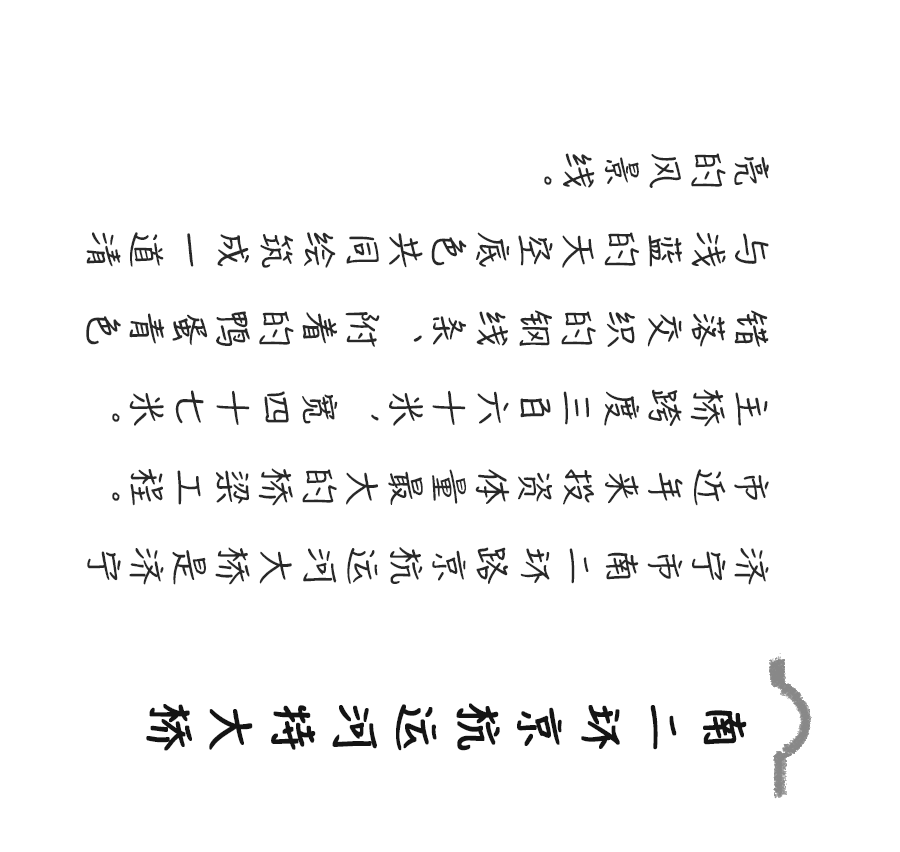 南二环京杭运河特大桥
济宁市南二环路京杭运河大桥是济宁
市近年来投资体量最大的桥梁工程。
主桥跨度三百六十米，宽四十七米。
错落交织的钢线条、附着的鸭蛋青色
与浅蓝的天空底色共同绘筑成一道清
亮的风景线。